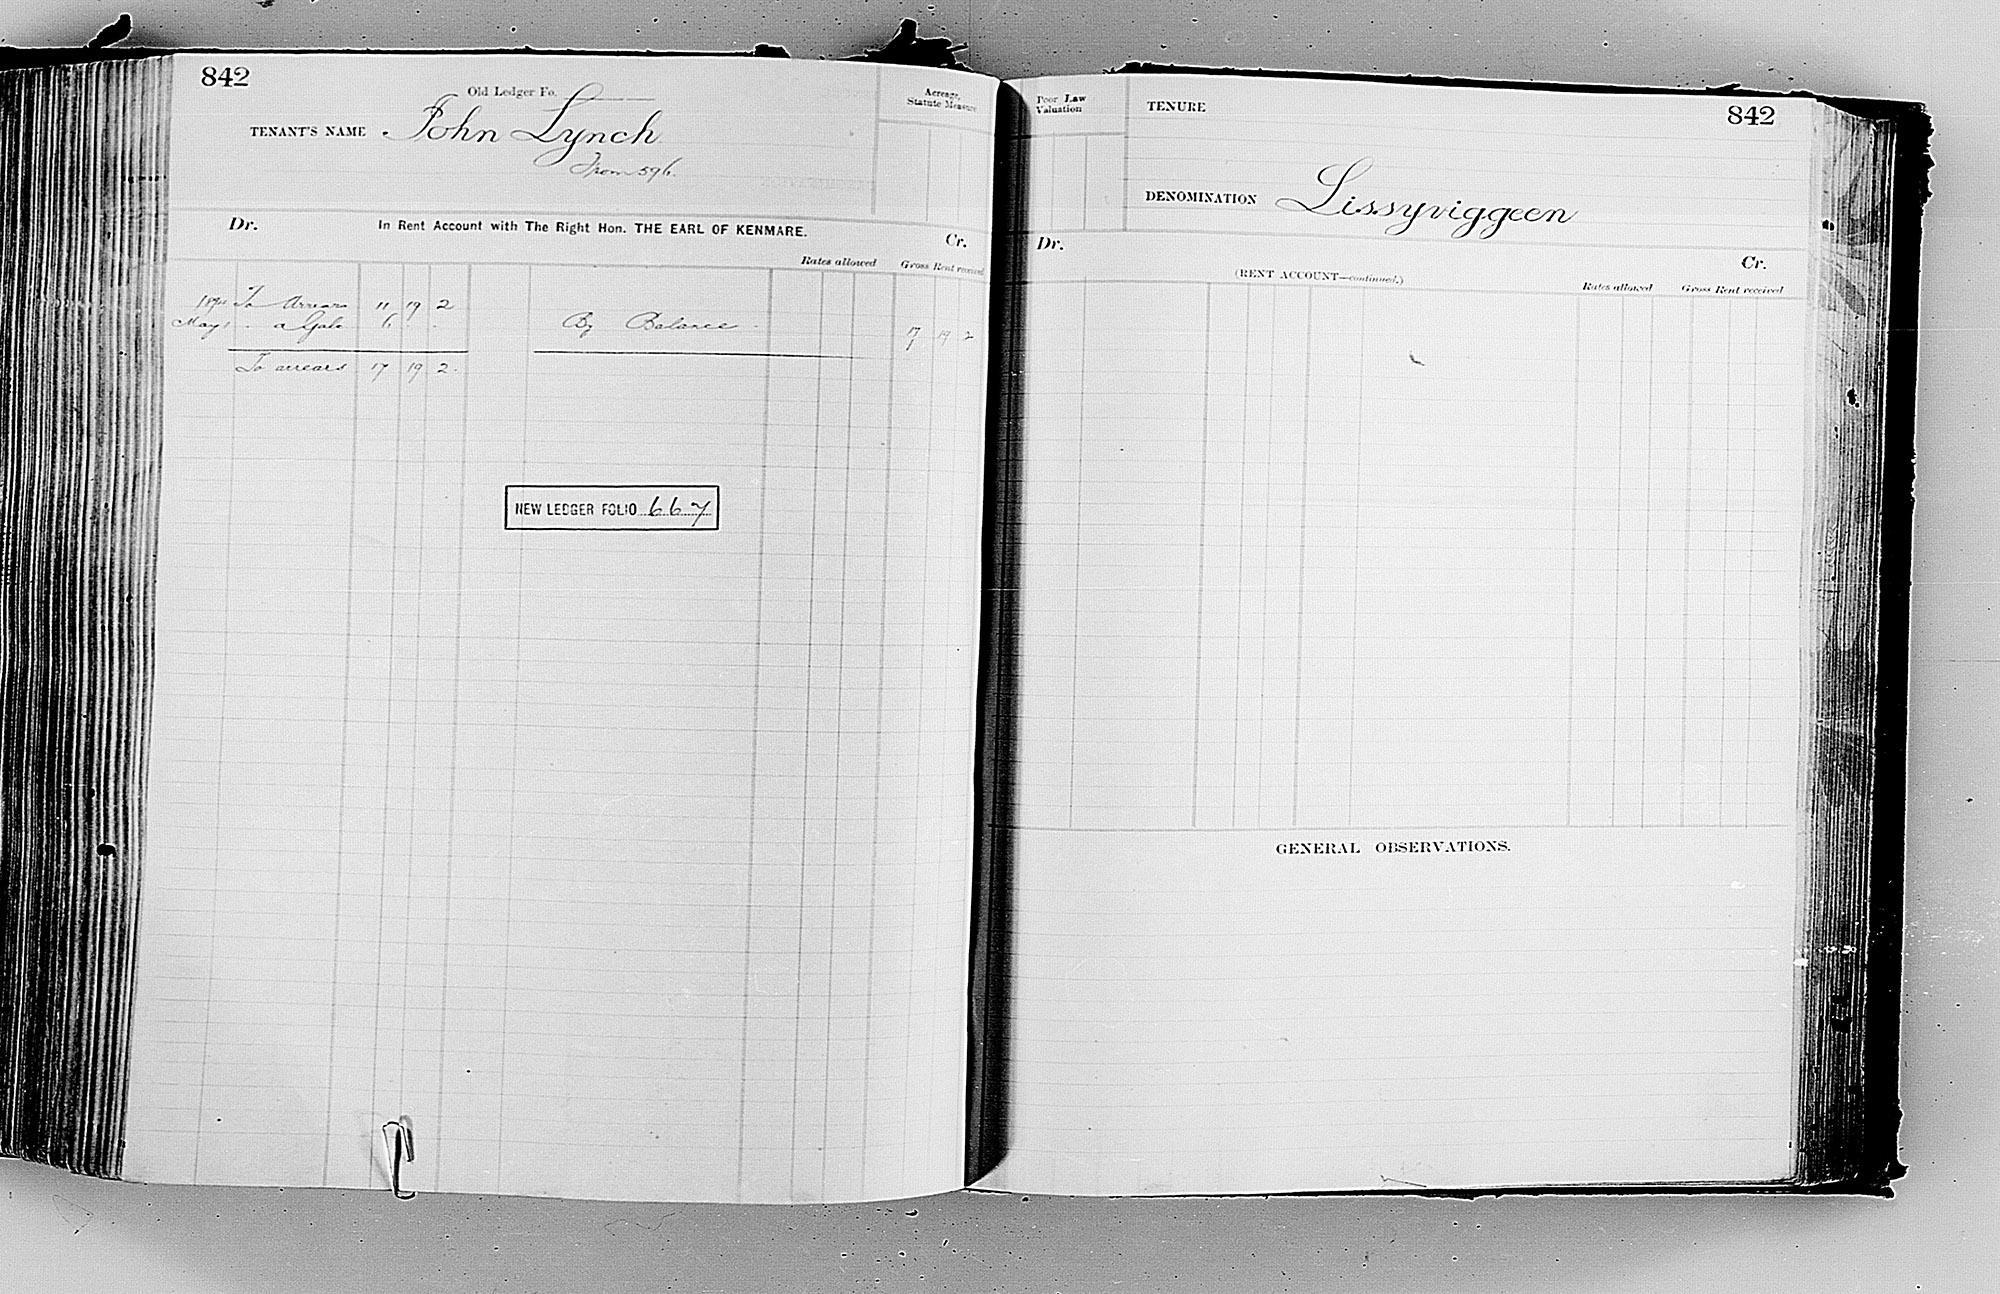 842
Old Ledger Fo.
TENANT'S NAME John Lynch
From 596.
Acreage, Statute Measure
Dr. In Rent Account with The Right Hon. THE EARL OF KENMARE. Cr.
Rates allowed Gross Rent received
To Arrears 11 19 2
May 1 " a Gale 6 . .
By Balance 17 19 2
To arrears 17 19 2.
NEW LEDGER FOLIO 667
Poor Law Valuation
TENURE
842
DENOMINATION Lissyviggeen
Dr. Cr.
(RENT ACCOUNT—continued.)
Rates allowed Gross Rent received
GENERAL OBSERVATIONS.